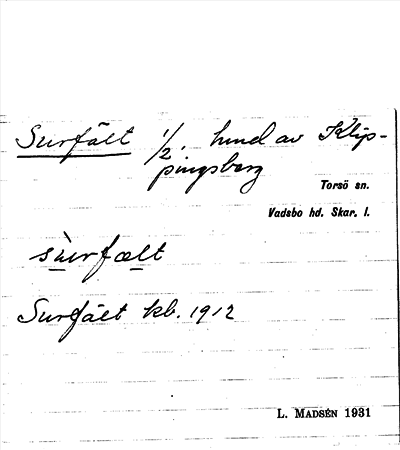 Surfält 1/2. hmd av Klip-
pingsberg
Torsö sn.
Vadsbo hd. Skar. l.
sùrfælt
Surfält kb. 1912
L. MADSÉN 1931